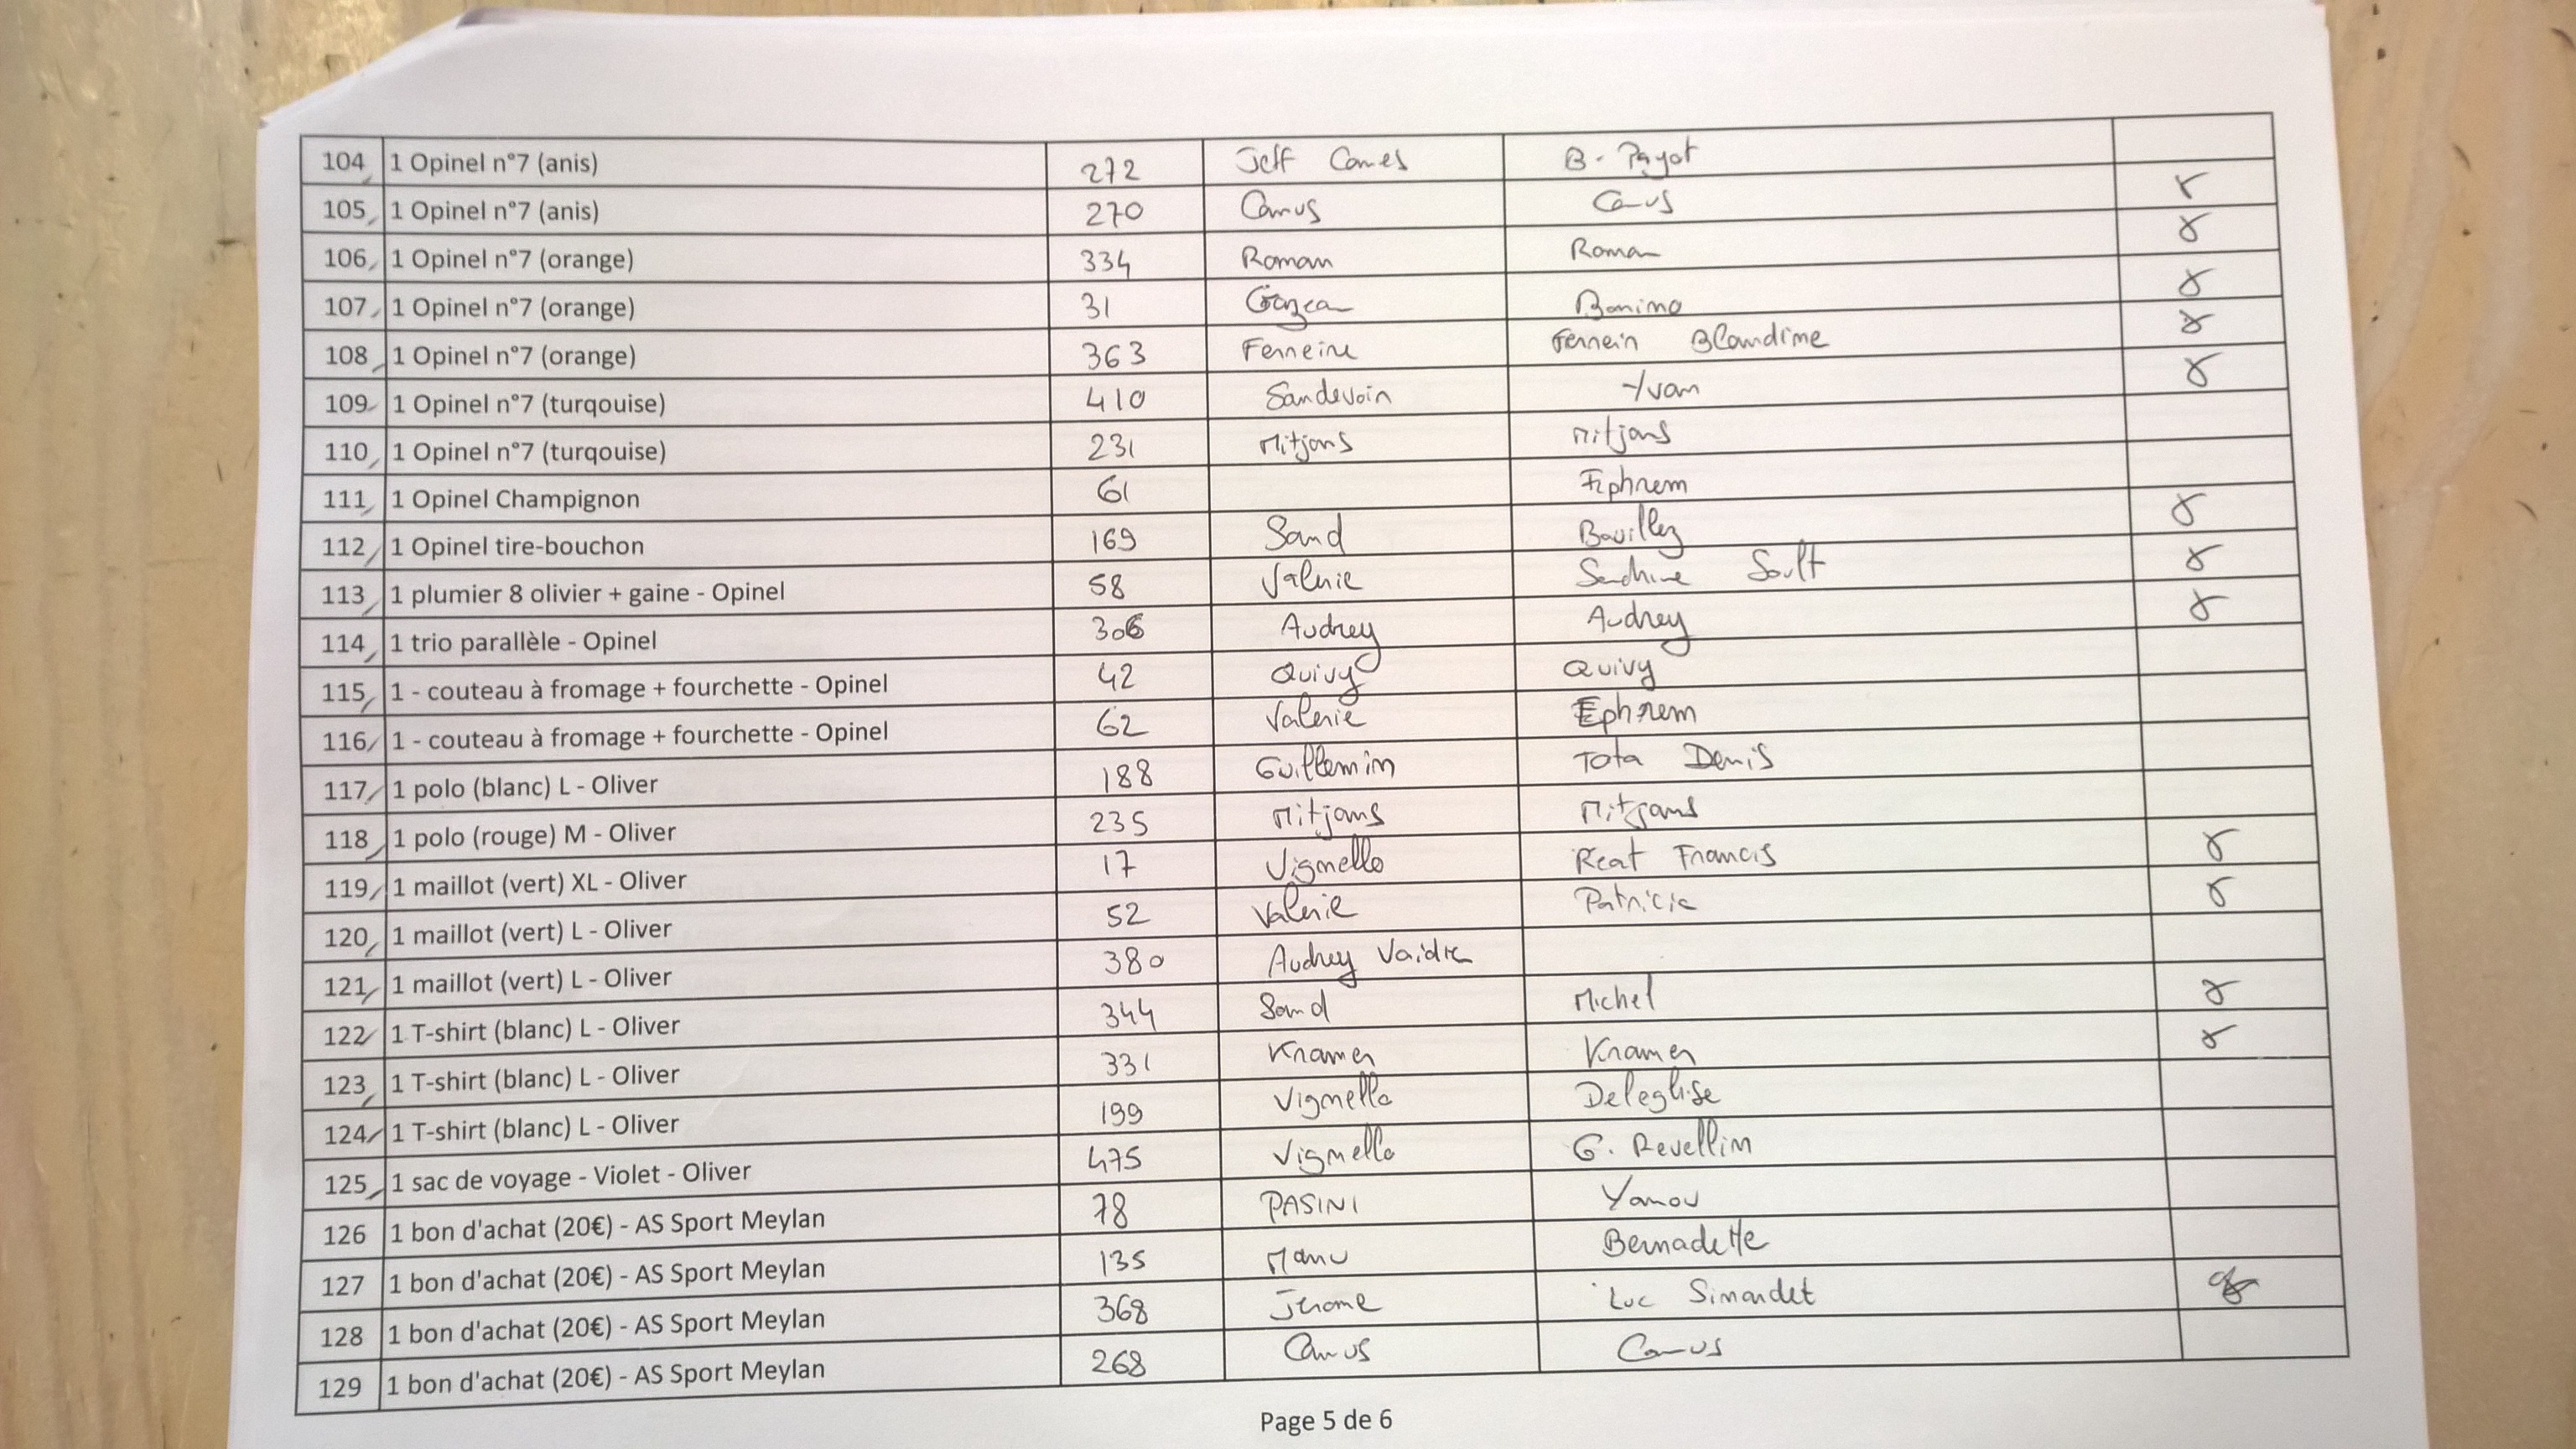 104 1 Opinel n°7 (anis) 272 Jeff Comes B. Payot
105 1 Opinel n°7 (anis) 270 Camus Camus
106 1 Opinel n°7 (orange) 334 Roman Roman
107 1 Opinel n°7 (orange) 31 Bonimo
108 1 Opinel n°7 (orange) 363 Ferreire Blandime
109 1 Opinel n°7 (turqouise) 410 Sandevoin Yvan
110 1 Opinel n°7 (turqouise) 231 Mitjans Mitjans
111 1 Opinel Champignon 61 Ephrem
112 1 Opinel tire-bouchon 169 Sand Bouillez
113 1 plumier 8 olivier + gaine - Opinel 58 Valerie Sandrine
114 1 trio parallèle - Opinel 306 Audrey Audrey
115 1 - couteau à fromage + fourchette - Opinel 42 Quivy Quivy
116 1 - couteau à fromage + fourchette - Opinel 62 Valerie Ephrem
117 1 polo (blanc) L - Oliver 188 Guillemin Tota Denis
118 1 polo (rouge) M - Oliver 235 Mitjans Mitjans
119 1 maillot (vert) XL - Oliver 17 Vignello Reat Francis
120 1 maillot (vert) L - Oliver 52 Valerie Patricia
121 1 maillot (vert) L - Oliver 380 Audrey
122 1 T-shirt (blanc) L - Oliver 344 Sand Michel
123 1 T-shirt (blanc) L - Oliver 331 Kramer Kramer
124 1 T-shirt (blanc) L - Oliver 199 Vignello Deleglise
125 1 sac de voyage - Violet - Oliver 475 Vignello G. Revellin
126 1 bon d'achat (20€) - AS Sport Meylan 78 PASINI Yanou
127 1 bon d'achat (20€) - AS Sport Meylan 135 Manu Bernadette
128 1 bon d'achat (20€) - AS Sport Meylan 368 Jerome Luc Simondet
129 1 bon d'achat (20€) - AS Sport Meylan 268 Camus Camus
Page 5 de 6